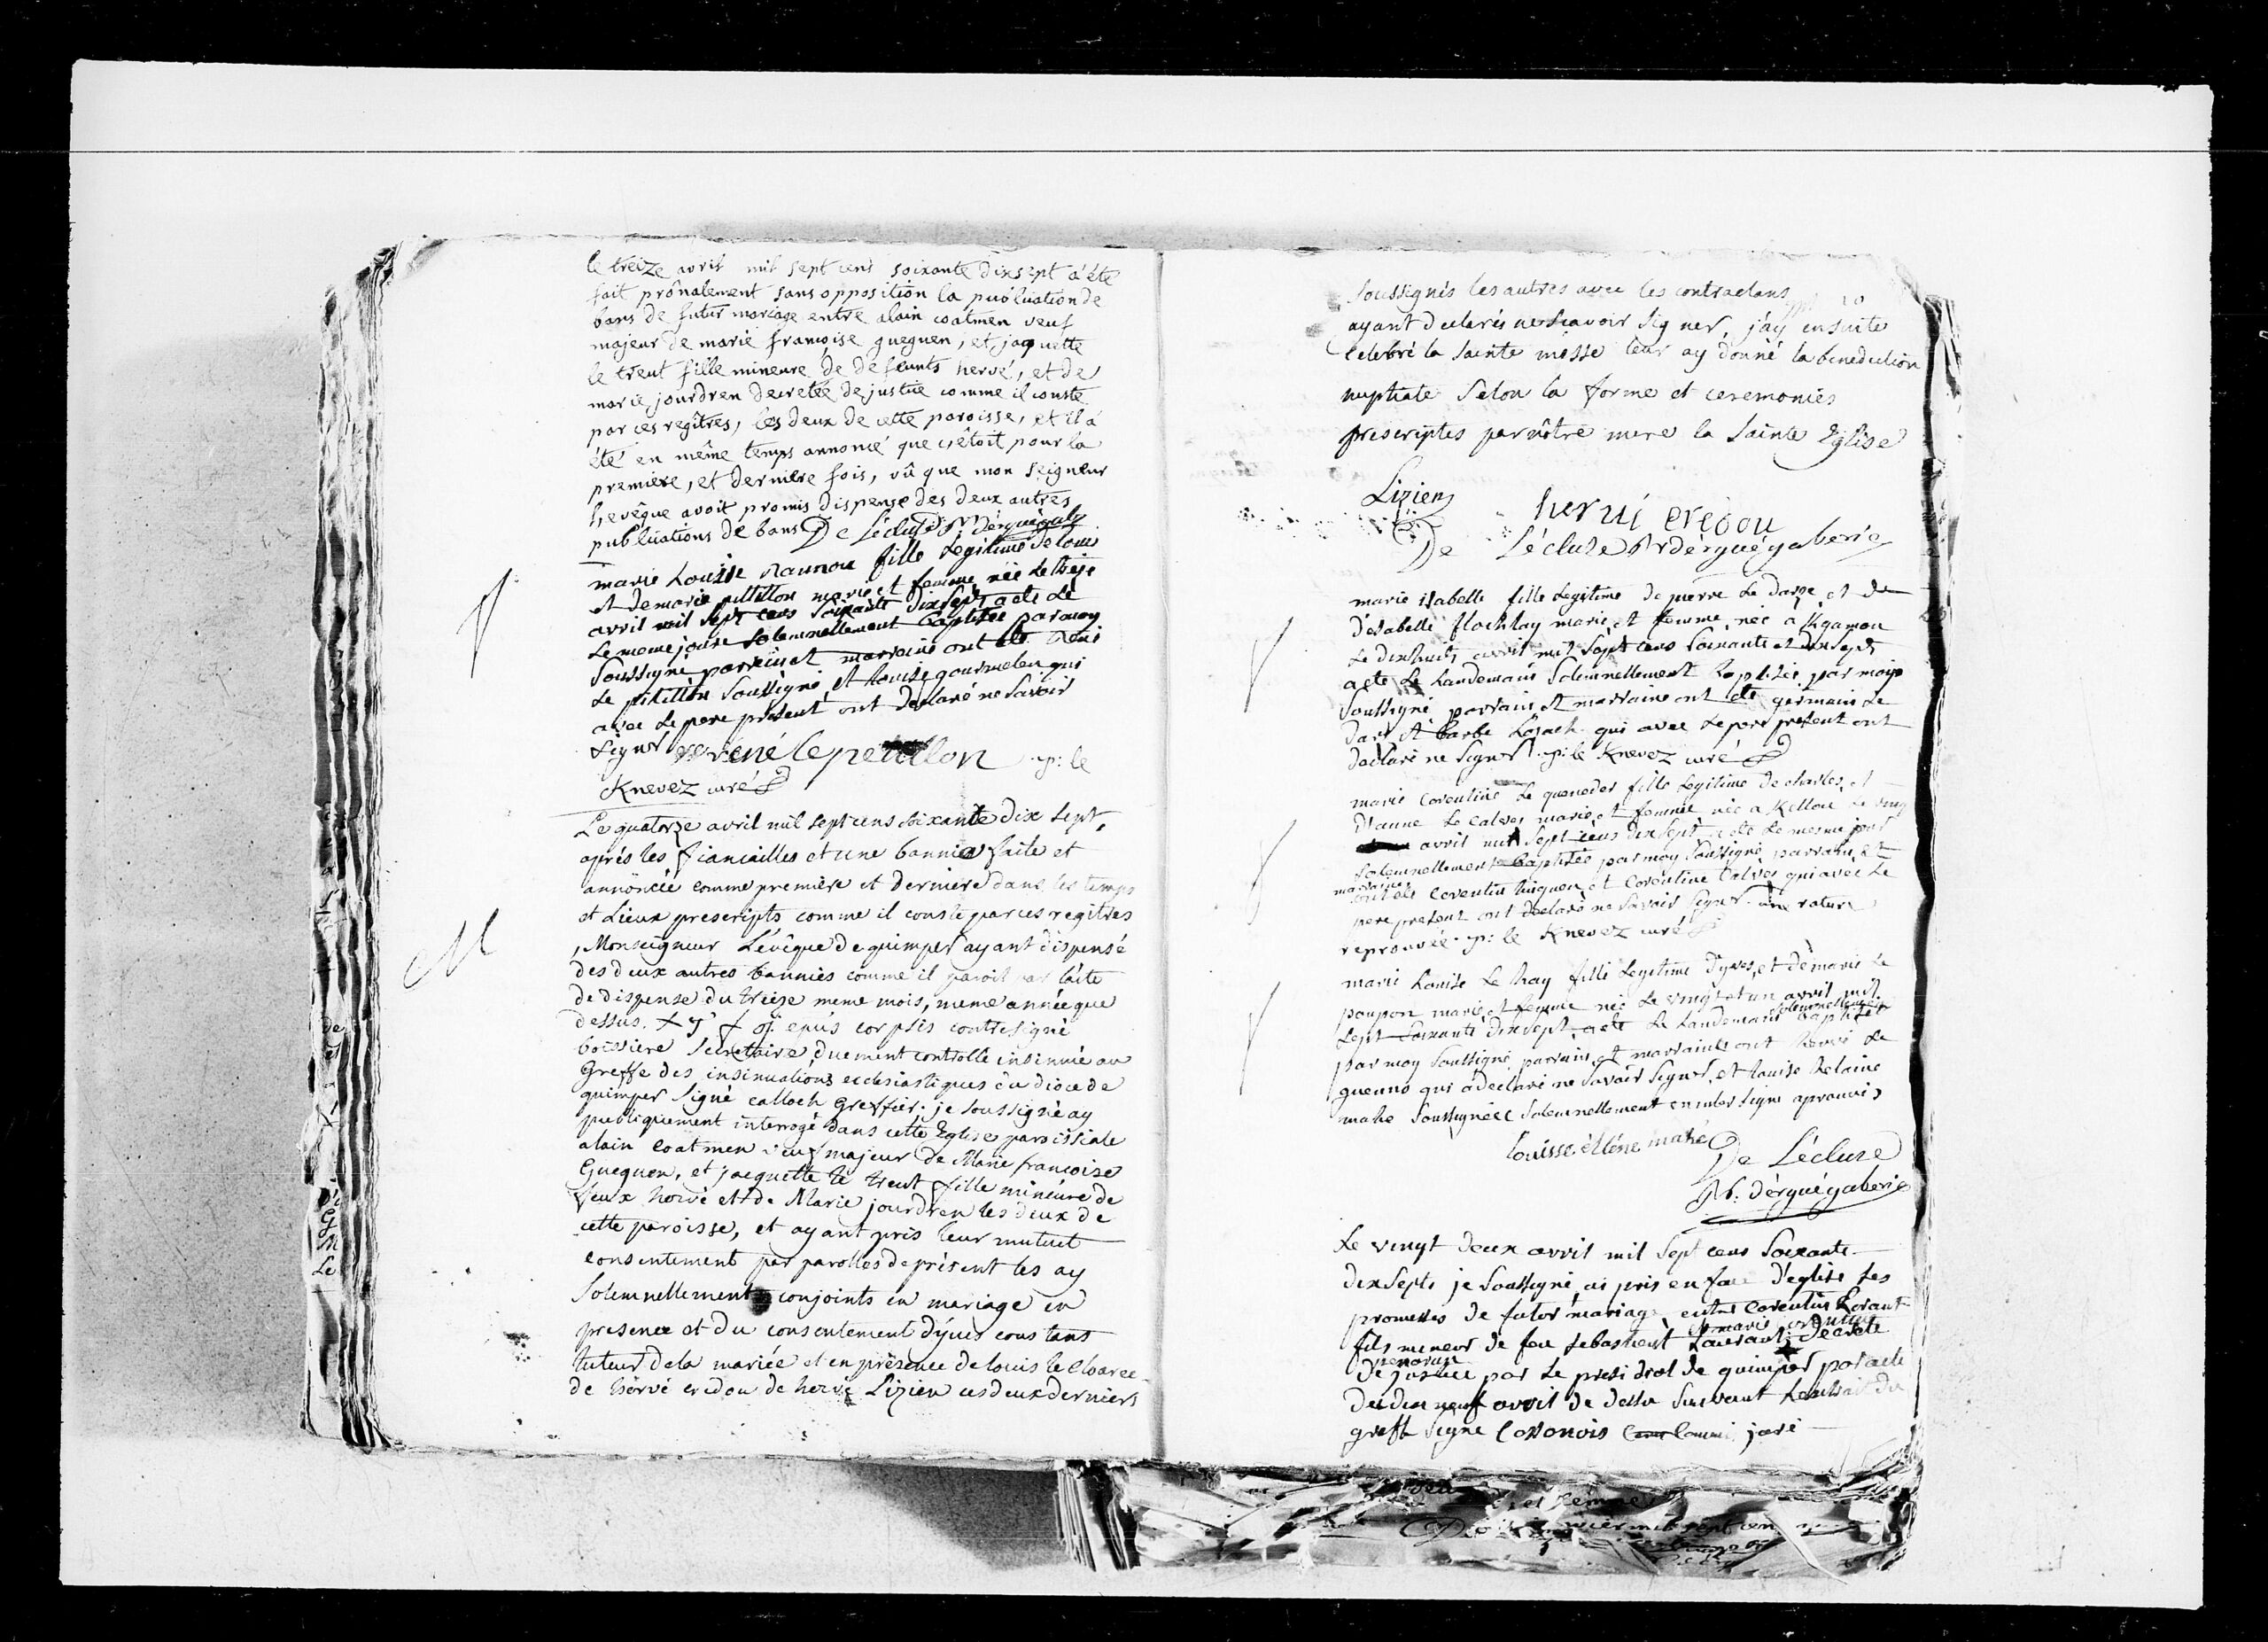 le treize avril mil sept cens soixante dixsept a été
fait prônalement sans opposition la publication de
bans de futur mariage entre alain coatmen veuf
majeur de marie françoise gueguen, et jaquette
le treut fille mineure de defeunts hervé, et de
marie jourdren decretée de justice comme il conste
par ces regîtres, les deux de cette paroisse, et il a
été en même temps annoncé que c'étoit pour la
premiere, et derniere fois, vû que mon seigneur
l'evêque avoit promis dispense des deux autres
publications de bans De Lécluse Rr dérguégaberie
marie Louise Naunou fille Legitime de Louis
et de marie pittillon marie et femme née le treize
avril mil sept cens soixante dixsept a ete le
le meme jour solemnellement baptisée par moy
soussigné parrain et marraine ont ete René
Le pitillon soussigné et Louise gourmelen qui
avec le pere present ont declaré ne savoir
signer rené le petillon p: le
Knevez curé
Le quatorze avril mil sept cens soixante dix sept,
aprés les fiancailles et une bannie faite et
annöncée comme première et derniere dans les temps
et Lieux prescripts comme il conste par ces regitres
, Monseigneur L'évêque de quimper ayant dispensé
des deux autres bannies comme il paroit par l'acte
de dispense du treize meme mois, meme année que
dessus. epús corpsis contresigné
boissiere secretaire, duement controllé insinuée au
Greffe des insinuations ecclesiastiques du diocede
quimper signé calloch Greffier; je soussigné ay
publiquement interrogé dans cette Eglise paroissiale
alain coatmen veuf majeur de Marie françoise
Gueguen, et jacquette le treut fille mineure de
feux hervé et de Marie jourdren les deux de
cette paroisse, et ayant pris leur mutuel
consentement par parolles de présent les ay
solemnellement conjoints en mariage en
presence et du consentement d'yves coustans
tuteur de la mariée et en présence de louis le Cloarec
de hérvé credou de hervé Lizien ces deux derniers
M
soussignés les autres avec les contractans
ayant declarés ne scavoir signer, j'ay ensuite
celebré la sainte messe leur ay donné la benediction
nuptiale selon la forme et ceremonies
prescriptes par nôtre mere la sainte Eglise
Lizien herui credou
De Lécluse Rr dérguégaberie
marie isabelle fille Legitime de pierre Le et de
d'esabelle flochlay marie et femme, née à Kgamen
Le dixhuit avril mil sept cens soixante et dixsept
a ete Le Landemain solemnellement baptisée par moy
soussigné parrain et marraine ont ete germain Le
et barbe qui avec le pere present ont
declaré ne signer p: le Knevez curé
marie Corentine Le queneder fille Legitime de charles, et
d'anne Le calvez marie et femme née a Kellou Le
avril mil sept cens dixsept a ete le mesme jour
solemnellement baptisée par moy soussigné parrain et
marraine
ont ete Corentin huiguen et Corentine Calvez qui avec le
pere present ont declaré ne savoir signer une rature
reprouvée. p: le Knevez curé
marie Louise Le hay fille Legitime d'yves, et de marie Le
poupon marie et femme née le vingt et un avril mil
solemnellement
sept soixante dixsept, a ete Le Landemain baptisée
par moy soussigné parrain et marraine ont hervé Le
guenno qui a declaré ne savoir signer, et Louise helaine
mahe soussignée solemnellement en interligne aprouvé
louisse éllene mahé De Lécluse
Rr: dérguégaberie
Le vingt deux avril mil sept cens soixante
dixsept je soussigné ai pris en face d'eglise les
promesses de futur mariage, entre Corentin Lorant
fils mineur de feu sebastient Laurant decrete
de justice par le presidial de quimper par acte
du dixneuf avril de dessu suivant L'extrait du
greffe signé commi juré